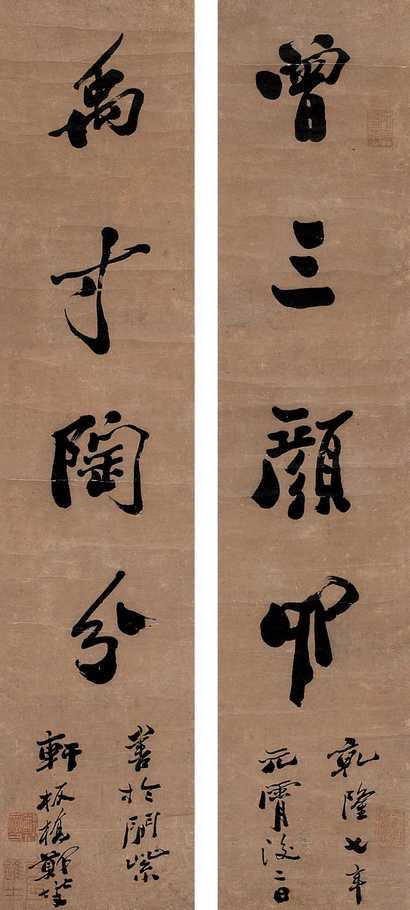 曾三顏四
乾隆七年
元宵後二日
禹寸陶分
書於聞紫
軒板橋鄭燮